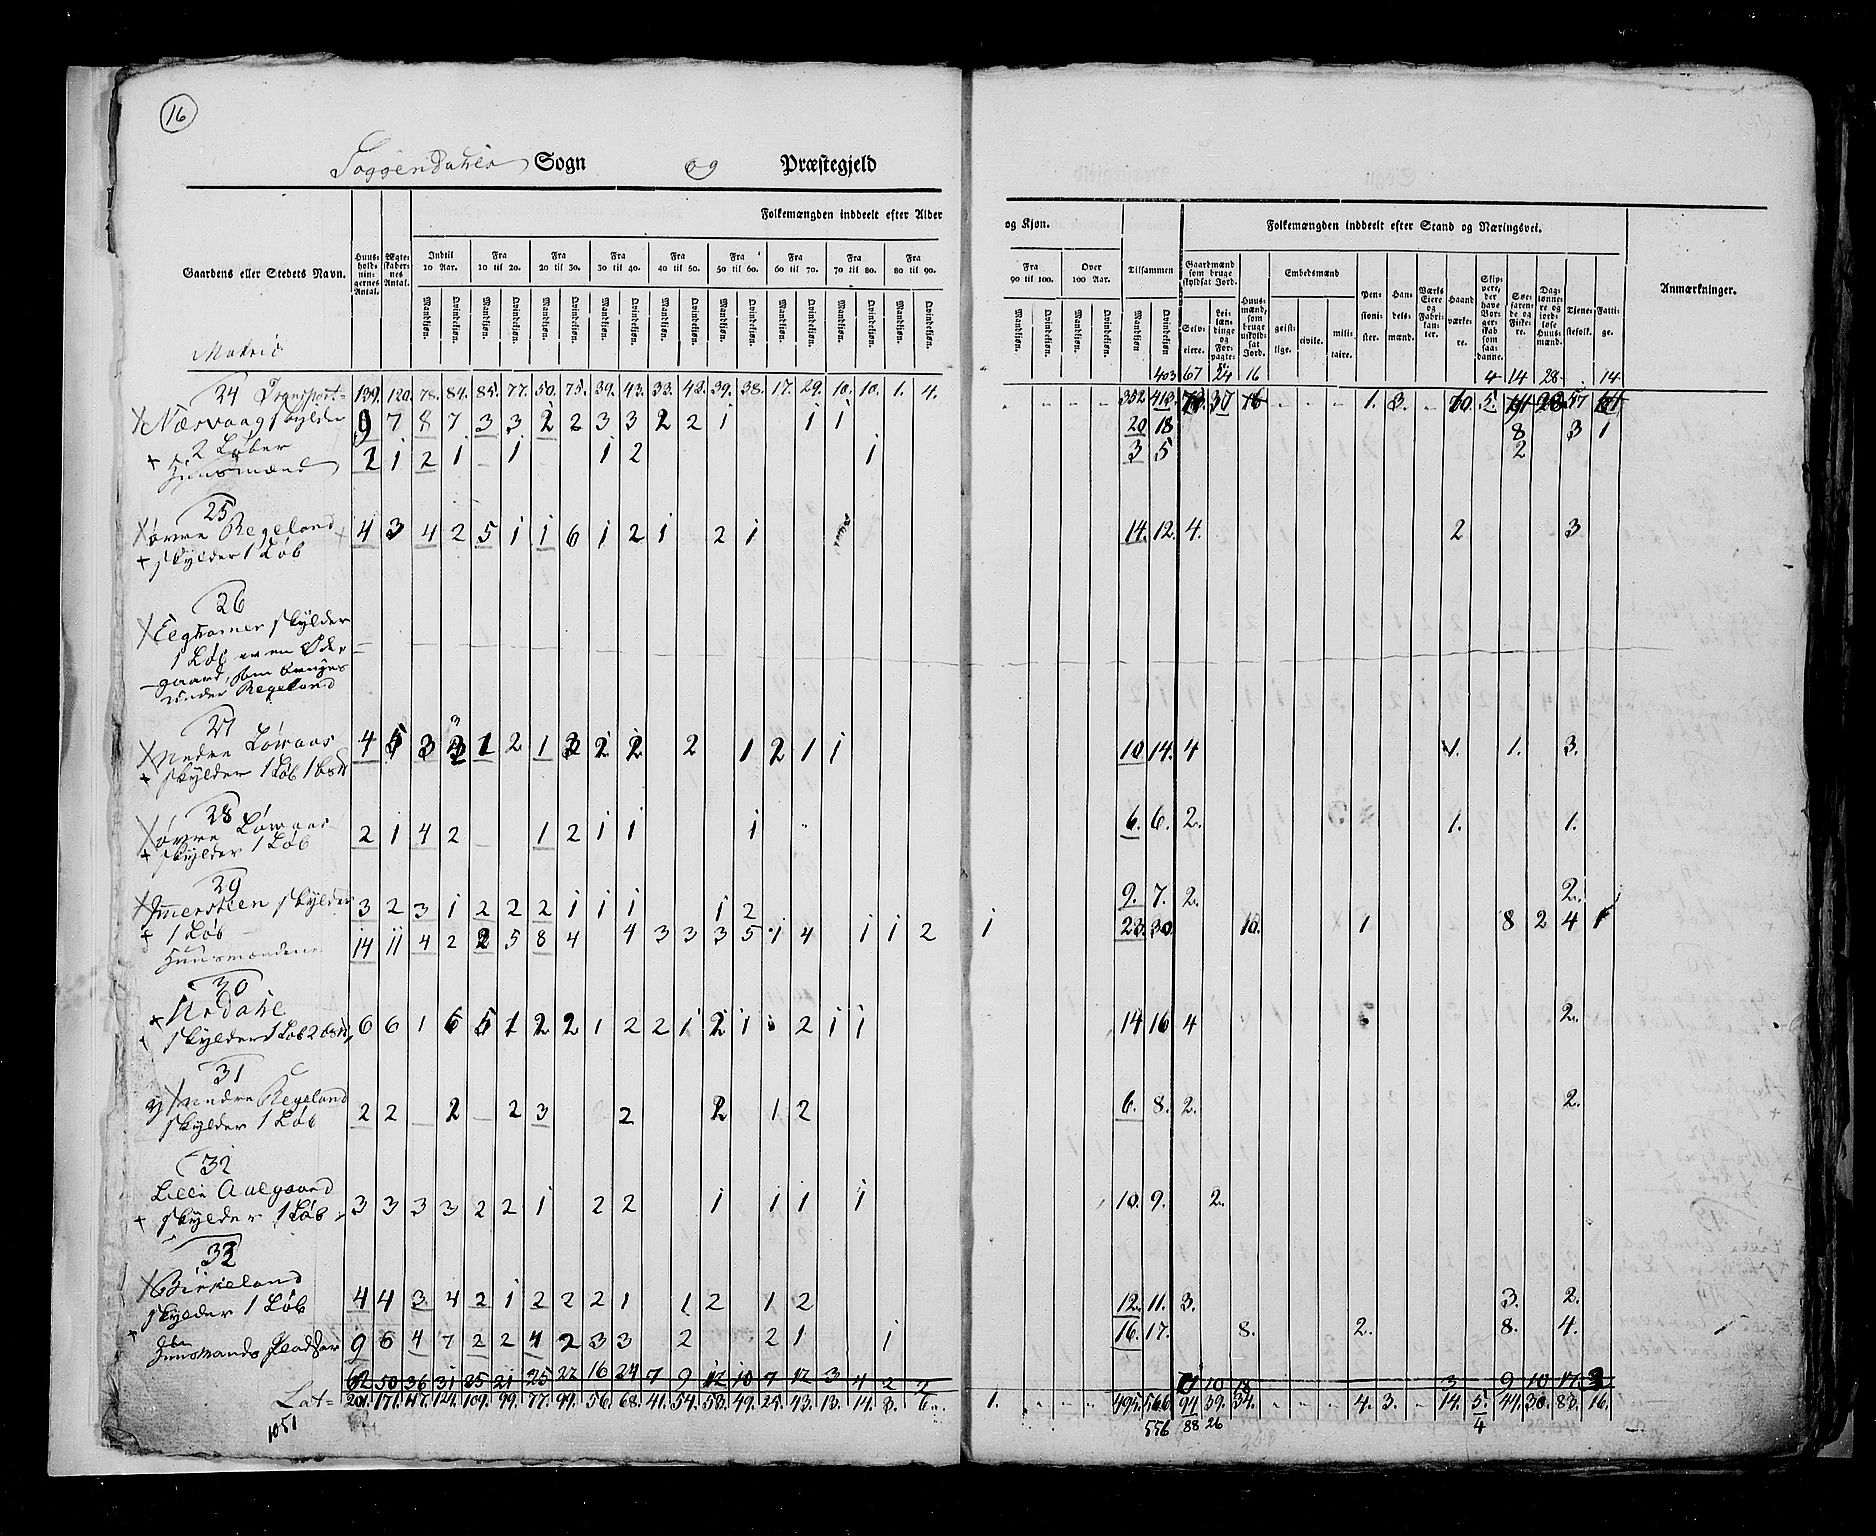 16
Soggendahls Sogn og Præstegjeld
Folkemængden inddeelt efter Alder
og Kjøn.
Folkemængden inddeelt efter Stand og Næringsvei.
Gaardens eller Stedets Navn.
Huus-holdnin-gernes Antal.
Ægte-skaber-nes Antal.
Indtil 10 Aar.
Fra 10 til 20.
Fra 20 til 30.
Fra 30 til 40.
Fra 40 til 50.
Fra 50 til 60.
Fra 60 til 70.
Fra 70 til 80.
Fra 80 til 90.
Fra 90 til 100.
Over 100 Aar.
Tilsammen
Gaardmænd som bruge skyldsat Jord.
Embedsmænd
Anmærkninger.
Mandkjøn. Qvindekjøn.
Selv-eiere.
Lei-læn-dinge og For-pagte:
Huus-mænd, som bruge uskyld-sat Jord.
geist-lige.
civile.
mili-taire.
Pen-sioni-ster.
Han-dels-mænd.
Værks Eiere og Fabri-kan-ter.
Haand værke-re.
Skip-pere, der have Bor-ger-skab som saa-danne.
Søe-faren-de og Fiske-re.
Dag-lønne-re og jord-løse Huus-mænd.
Tjene-stefolk.
Fatti-ge.
Matric
403 67 24 16 4 14 28 14
24 Transport 139. 120. 78. 84. 85. 77. 50. 75. 39. 43. 33. 43. 39. 38. 17. 29. 10. 10. 1. 4. 352. 413. 1. 3. 5. 57
Næsvaag skylder 9 7 8 7 3 3 2 2 3 3 2 2 1 1 1 20 18 8 3 1
2 Løber
Huusmænd 2 1 2 1 1 1 2 1 3 5 2
25
øvre Regeland 4 3 4 2 5 1 1 6 1 2 1 2 1 14. 12. 4. 2 3
skylder 1 Løb
26
Eeghamer skylder
1 Løb er en Øde
gaard, som bruges
under Regeland
27
Nedre Løvaas 4 5 3 3 1 2 1 3 2 2 2 1 2 1 1 10 14. 4 1. 1. 3.
skylder 1 Løb 1
28
øvre Løvaas 2 1 4 2 1 2 1 1 1 6. 6. 2. 1. 1.
skylder 1 Løb
29
skylder 3 2 3 1 2 2 2 1 1 1 1 2 9. 7. 2. 2.
1 Løb
Huusmændene 14 11 4 2 2 5 8 4 4 3 3 3 5 1 4 1 1 2 1 23. 30. 10. 1 8 2 4 1
30
Urdahl
skylder 1 Løb 2 6 6 1 6 5 1 2 2 1 2 2 1 2 1 2 1 1 14 16 4 2.
31
nedre Regeland
skylder 1 Løb 2 2 2 2 3 2 2 1 2 6. 8. 2. 2.
32
Lille Aalgaard
skylder 1 Løb 3 3 3 3 2 2 1 2 2 1 1 1 1 10. 9. 2.
33
Birkeland
skylder 1 Løb 4 4 3 4 2 1 2 2 2 1 1 2 1 2 12. 11. 3. 3. 2.
Huusmands Pladser 9 6 4 7 2 2 4 2 3 3 2 2 1 1 16. 17. 8. 2. 8. 4.
62 50 36 31 25 21 25 22 16 24 7 9 12 10 7 12 3 4 2 2 10 18 3 9 10 17
Lat= 201. 171. 117. 124. 109. 99. 77. 99. 56. 68. 41. 54. 53. 49. 25. 43. 13. 14. 3. 6. 1. 495. 566 94 39. 34. 4. 3. 14. 5. 44. 30. 83. 16.
1051
556 88 26 4